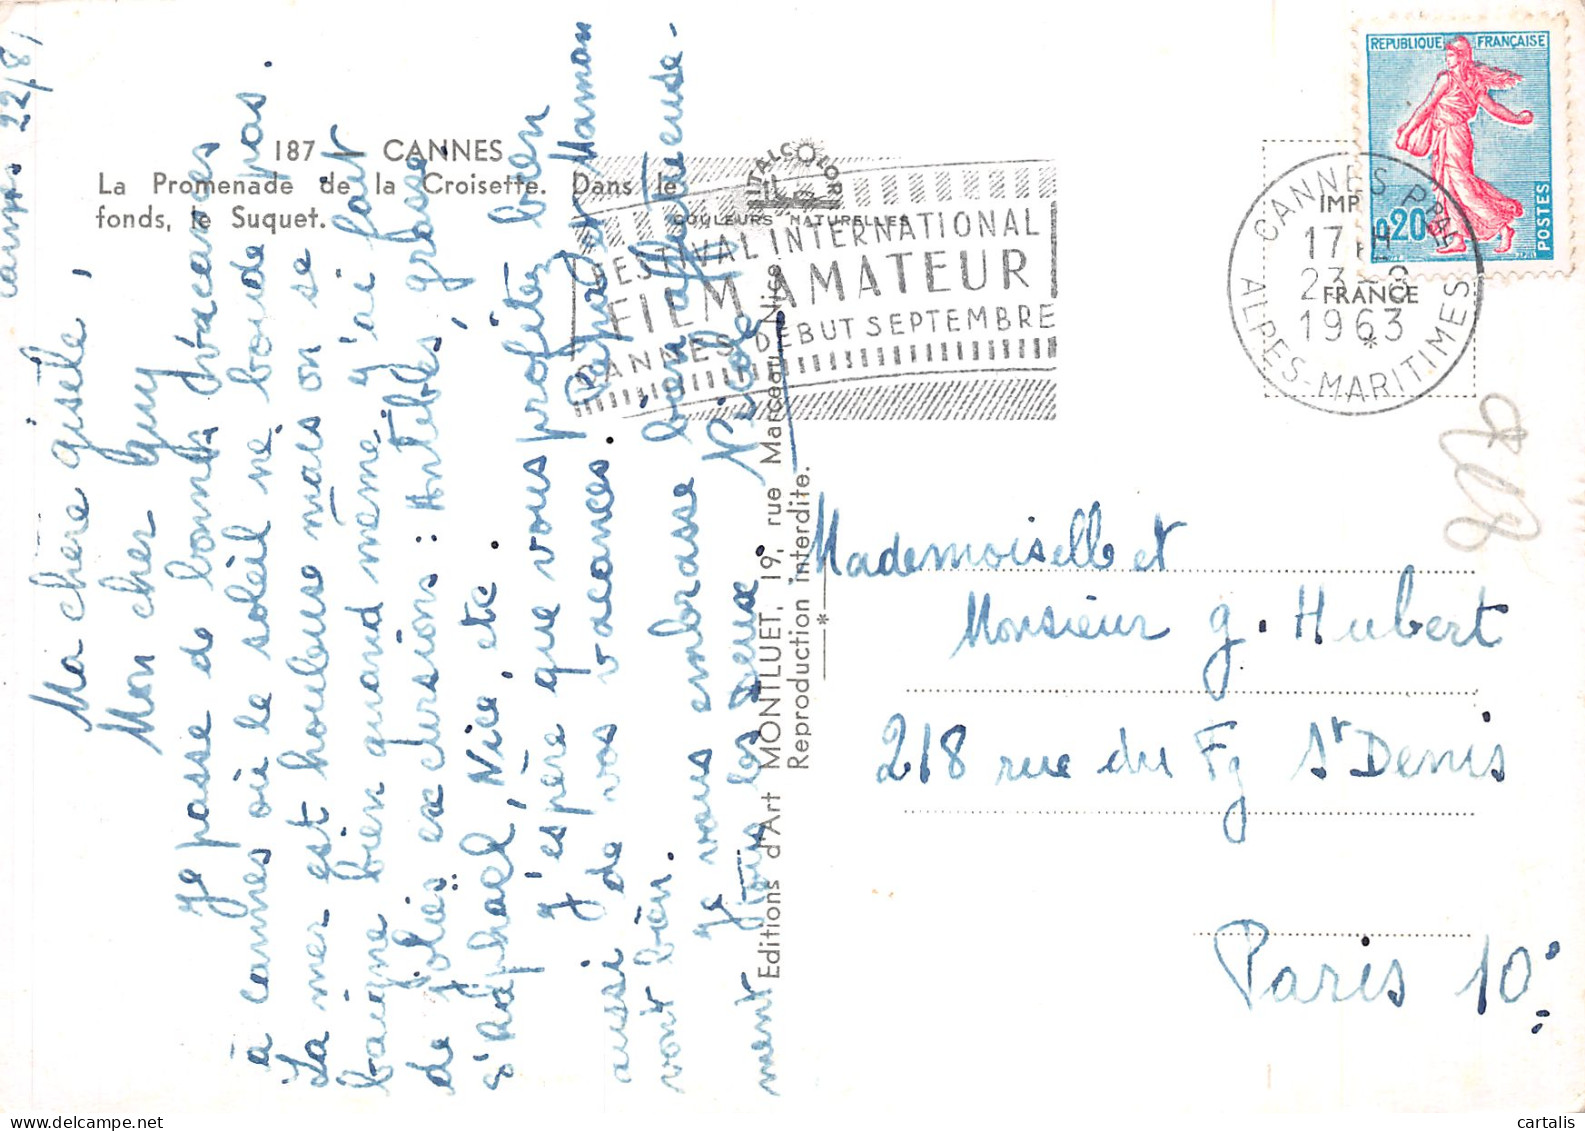 187 — CANNES
La Promenade de la Croisette. Dans le
fonds, le Suquet.
ITALCOLOR
COULEURS NATURELLES
FESTIVAL INTERNATIONAL
FILM AMATEUR
CANNES DEBUT SEPTEMBRE
REPUBLIQUE FRANÇAISE
0,20
POSTES
IMP
FRANCE
CANNES PPAL
17 H
23-8
1963
*
ALPES-MARITIMES
Editions d'Art MONTLUET, 19, rue Marceau, Nice
Reproduction interdite.
*
Cannes 22/8/
Ma chère gisèle,
Mon cher Guy
Je passe de bonnes vacances
à cannes où le soleil ne boude pas.
La mer est houleuse mais on se
baigne bien quand même. J'ai fait
de jolies excursions : Antibes, grasse
St Raphaël, Nice, etc.
J'espère que vous profitez bien
aussi de vos vacances. Papa et Maman
vont bien.
Je vous embrasse bien affectueuse-
ment tous les deux Nicole
Mademoiselle et
Monsieur g. Hubert
218 rue du Fg St Denis
Paris 10e
cartalis
www.delcampe.net